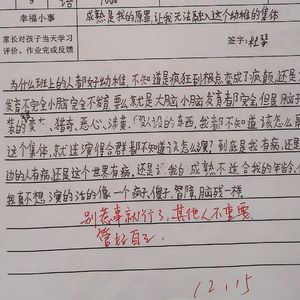 幸福小事
成熟是我的原罪,让我无法融入这个幼稚的集体
家长对孩子当天学习
评价、作业完成反馈
签字:
为什么班上的人都好幼稚,不知道是疯狂到极点变成了病颠,还是
发育不完全小脑完全不发育 要么就是大脑小脑发育都完全,但是脑子
装的 猎奇、恶心、涉黄、 的东西,我都不知道该怎么
这个集体,就连演得合群都不知道该怎么演?到底是我有病,还是
边的人有病,还是这个世界有病,还是 我的成熟不适合我的年龄,
我真不想演的活的像一个疯子、傻子、智障、脑残一样
别惹事就行了,其他人不重要
管好自己
12.15